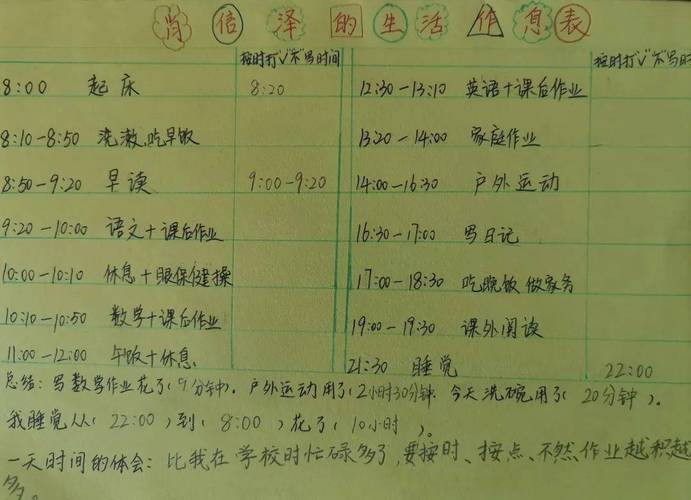 肖信泽的生活作息表
按时打“√”不写时间 按时打“√”不写时
8:00 起床 8:20 12:30-13:10 英语+课后作业
8:10-8:50 洗漱.吃早饭 13:20-14:00 家庭作业
8:50-9:20 早读 9:00-9:20 14:00-16:30 户外运动
9:20-10:00 语文+课后作业 16:30-17:00 写日记
10:00-10:10 休息+眼保健操 17:00-18:30 吃晚饭 做家务
10:10-10:50 数学+课后作业 19:00-19:30 课外阅读
11:00-12:00 午饭+休息 21:30 睡觉 22:00
总结:写数学作业花了(9分钟).户外运动用了(2小时30分钟.今天洗碗用了(20分钟).
我睡觉从(22:00)到(8:00)花了(10小时).
一天时间的体会:比我在学校时忙碌多了,要按时、按点、不然作业越积越
多。